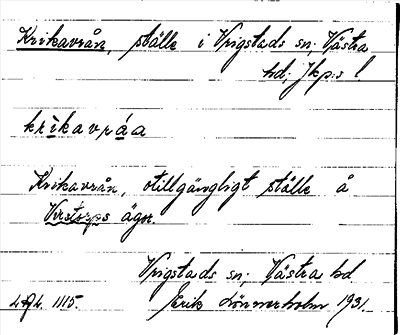 Krikavrån, ställe i Vrigstads sn; Västra
hd; Jkp:s l
krìkavráa
Krikavrån, otillgängligt ställe å
Vrstorps ägor.
Vrigstads sn; Västra hd
Erik Lönnerholm 1931.
1115.